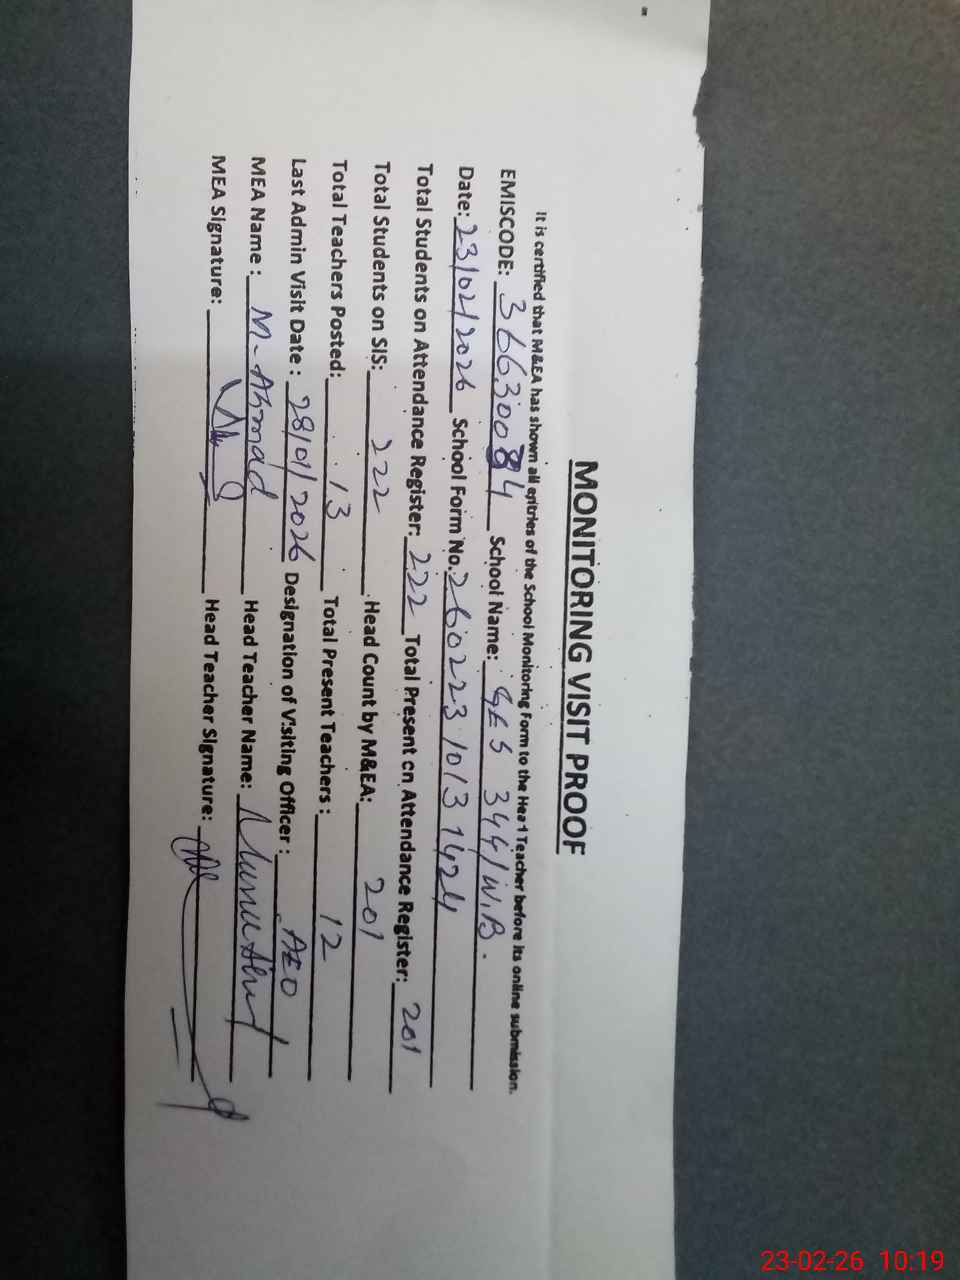 MONITORING VISIT PROOF
It is certified that M&EA has shown all entries of the School Monitoring Form to the Head Teacher before its online submission.
EMISCODE: 36630084 School Name: GES 344/W.B.
Date: 23/02/2026 School Form No. 260223 1013 1424
Total Students on Attendance Register: 222 Total Present on Attendance Register: 201
Total Students on SIS: 222 Head Count by M&EA: 201
Total Teachers Posted: 13 Total Present Teachers: 12
Last Admin Visit Date: 28/01/2026 Designation of Visiting Officer: AEO
MEA Name: M-Ahmad Head Teacher Name:
MEA Signature: Head Teacher Signature:
23-02-26 10:19